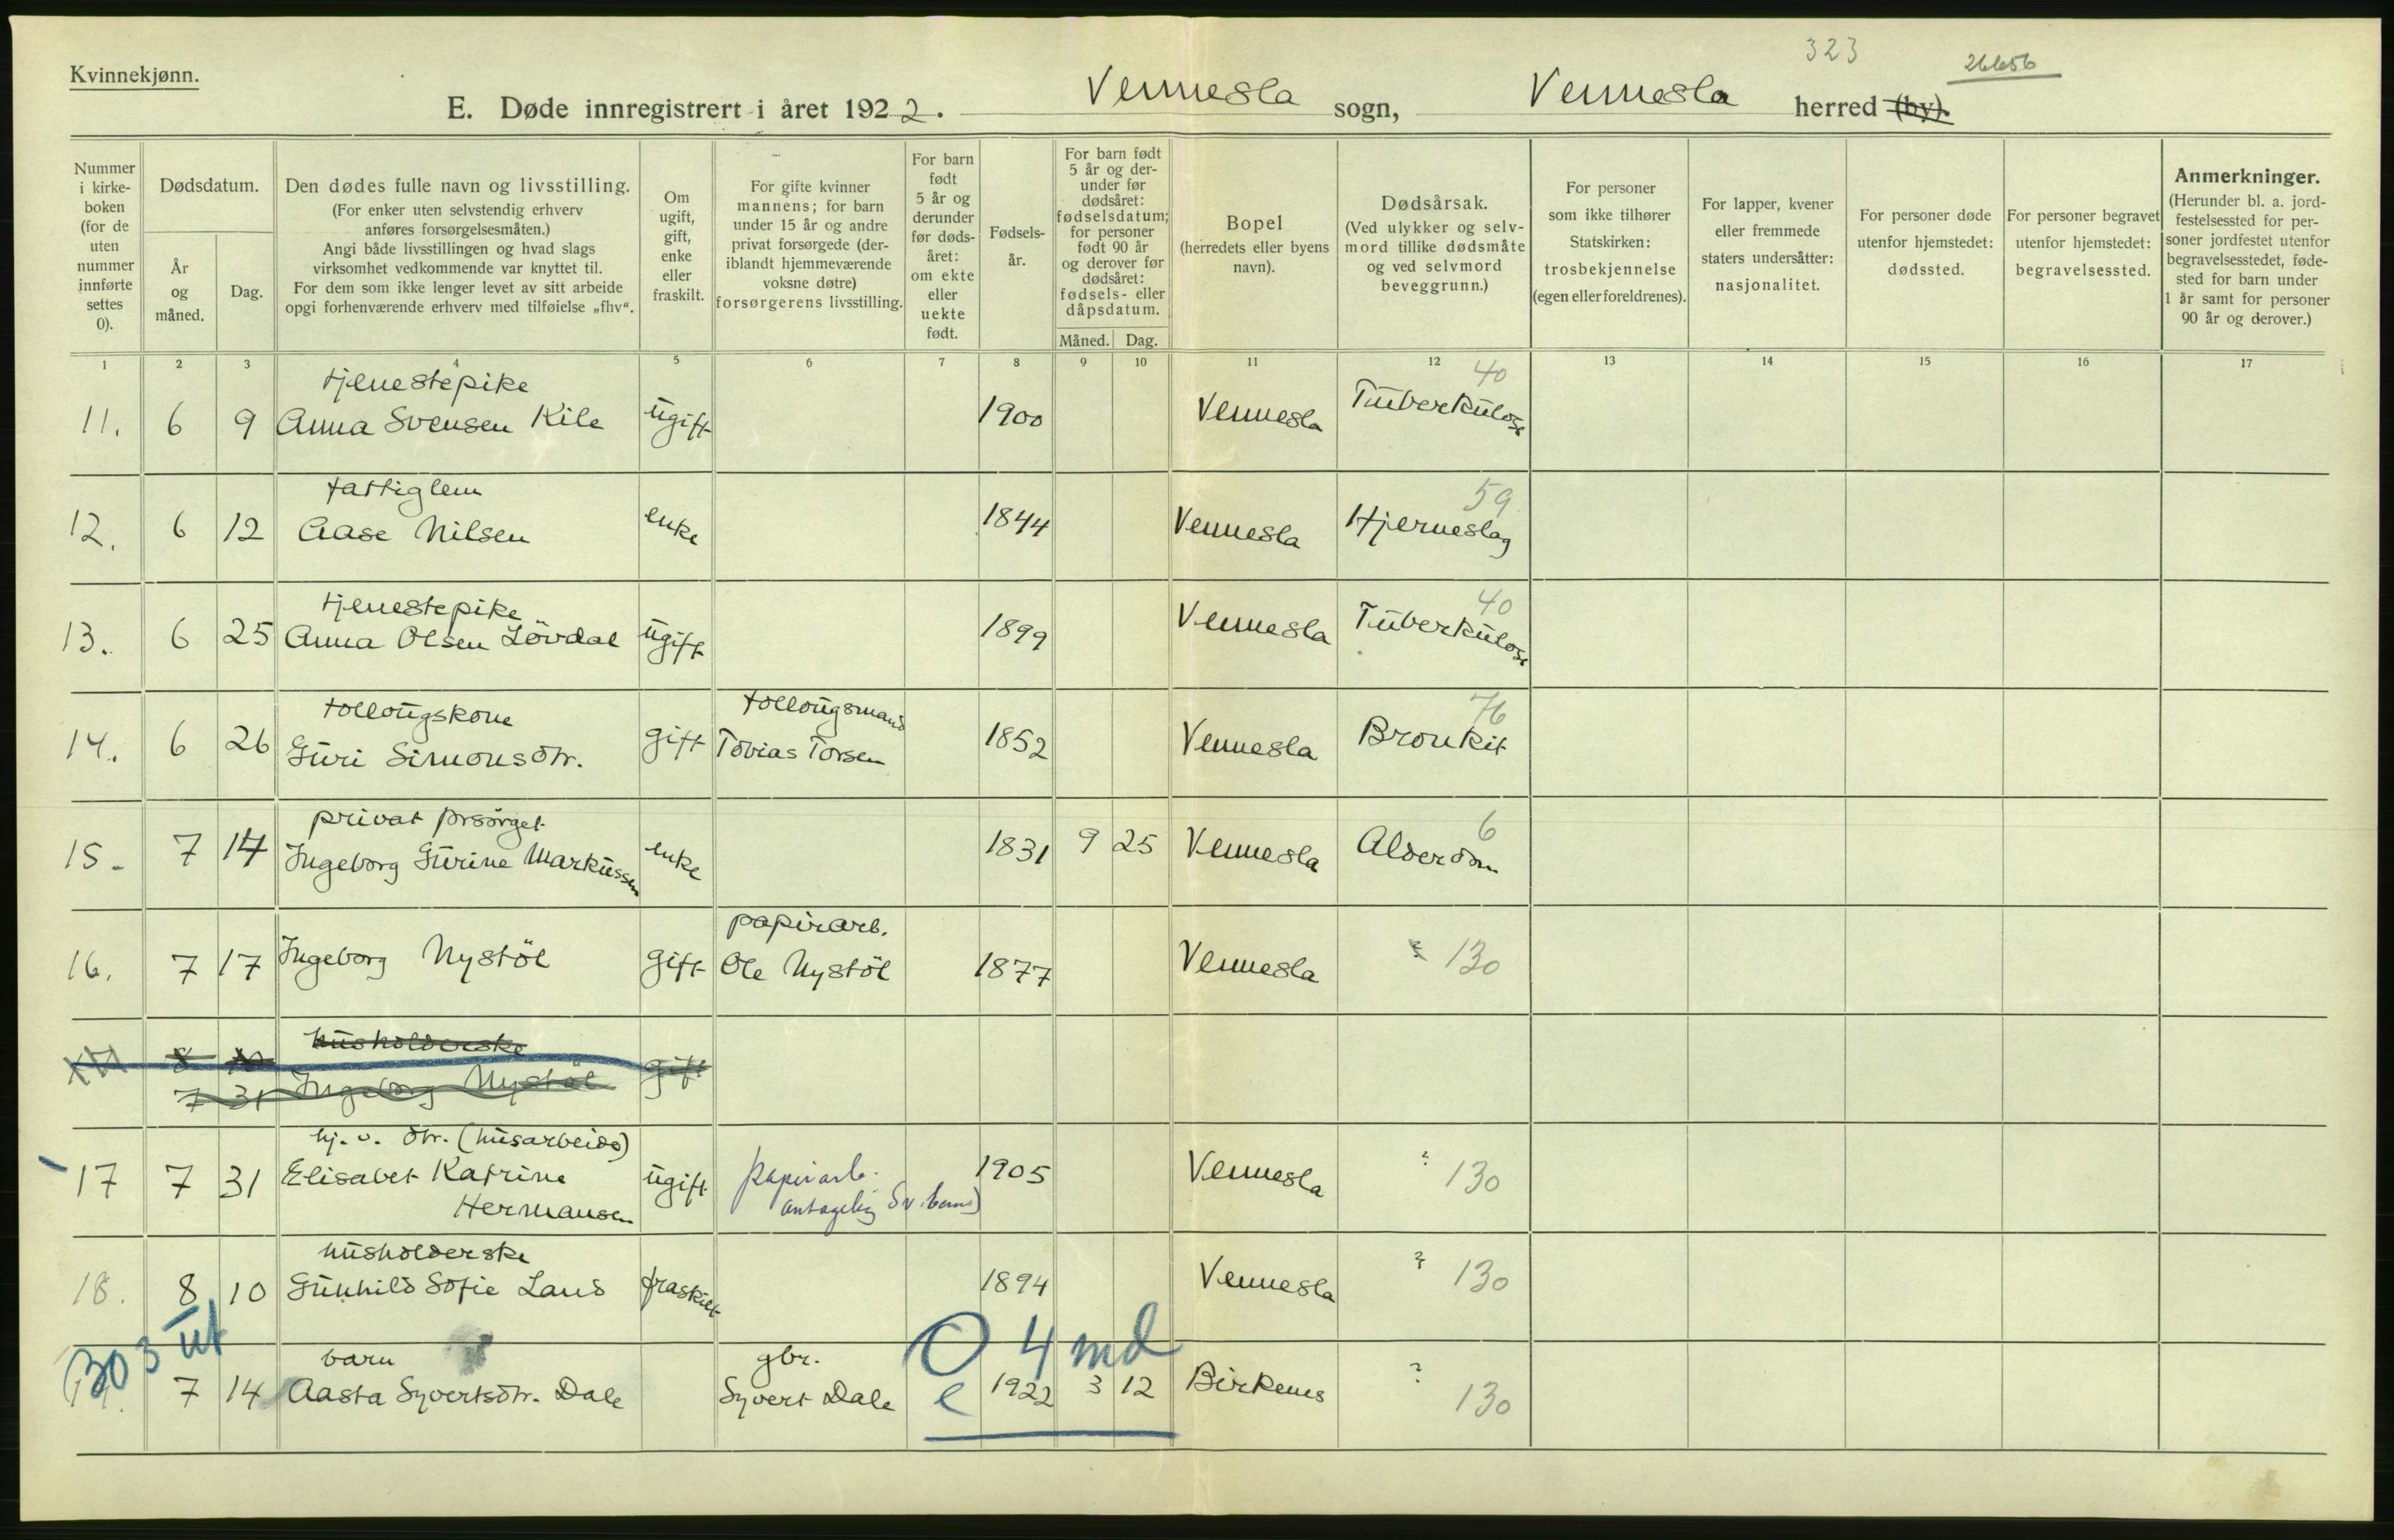 Kvinnekjønn.
323
26656
E. Døde innregistrert i året 1922. Vennesla sogn, Vennesla herred (by).
Nummer i kirkeboken (for de uten nummer innførte settes 0).
Dødsdatum.
År og måned.
Dag.
Den dødes fulle navn og livsstilling.
(For enker uten selvstendig erhverv anføres forsørgelsesmåten.)
Angi både livsstillingen og hvad slags virksomhet vedkommende var knyttet til.
For dem som ikke lenger levet av sitt arbeide opgi forhenværende erhverv med tilføielse „fhv“.
Om ugift, gift, enke eller fraskilt.
For gifte kvinner mannens; for barn under 15 år og andre privat forsørgede (deriblandt hjemmeværende voksne døtre) forsørgerens livsstilling.
For barn født 5 år og derunder før dødsåret: om ekte eller uekte født.
Fødselsår.
For barn født 5 år og derunder før dødsåret: fødselsdatum; for personer født 90 år og derover før dødsåret: fødsels- eller dåpsdatum.
Måned. Dag.
Bopel (herredets eller byens navn).
Dødsårsak. (Ved ulykker og selvmord tillike dødsmåte og ved selvmord beveggrunn.)
For personer som ikke tilhører Statskirken: trosbekjennelse (egen eller foreldrenes).
For lapper, kvener eller fremmede staters undersåtter: nasjonalitet.
For personer døde utenfor hjemstedet: dødssted.
For personer begravet utenfor hjemstedet: begravelsessted.
Anmerkninger. (Herunder bl. a. jordfestelsessted for personer jordfestet utenfor begravelsesstedet, fødested for barn under 1 år samt for personer 90 år og derover.)
1 2 3 4 5 6 7 8 9 10 11 12 13 14 15 16 17
tjenestepike 40
11. 6 9 Anna Svensen Kile ugift 1900 Vennesla Tuberkulose
fattiglem 59
12. 6 12 Aase Nilsen enke 1844 Vennesla Hjerneslag
tjenestepike 40
13. 6 25 Anna Olsen Lövdal ugift 1899 Vennesla Tuberkulose
follougskone follougsmand 76
14. 6 26 Guri Simonsdtr. gift Tobias Torsen 1852 Vennesla Bronkit
privat forsörget 6
15. 7 14 Ingeborg Gurine Markussen enke 1831 9 25 Vennesla Alderdom
papirarb.
16. 7 17 Ingeborg Nystöl gift Ole Nystöl 1877 Vennesla ? 130
husholderske
8
7 31 Ingeborg Nystöl gift
hj. v. dtr. (husarbeide)
17 7 31 Elisabet Katrine Hermansen ugift papirarb. antagelig 1905 Vennesla ? 130
husholderske
18. 8 10 Gunhild Sofie Land fraskilt 1894 Vennesla ? 130
130 3 ut 0 4 md
barn gbr.
7 14 Aasta Syvertsdtr. Dale Syvert Dale e 1922 3 12 Birkenes ? 130